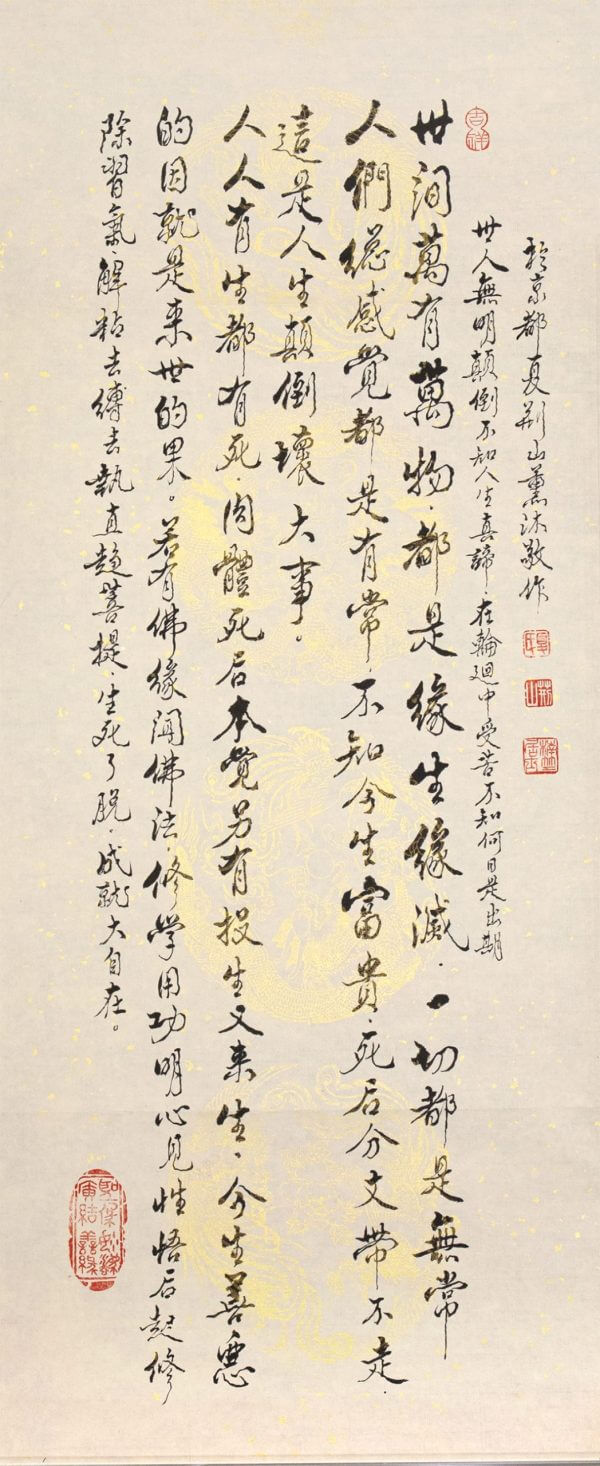 於京都夏荆山薰沐敬作
荆山
世人無明顛倒不知人生真諦.在輪迴中受苦不知何日是出期
吉祥
世间萬有萬物.都是緣生緣滅.一切都是無常
人們總感覺都是有常.不知今生富貴.死后分文帶不走.
這是人生顛倒壞大事.
人人有生都有死.肉體死后本覺另有投生又来生.今生善惡
的因就是来世的果。若有佛緣闻佛法.修学用功明心見性悟后起修
除習氣.解粘去縛去執直趋菩提.生死了脱.成就大自在。
廣結善緣